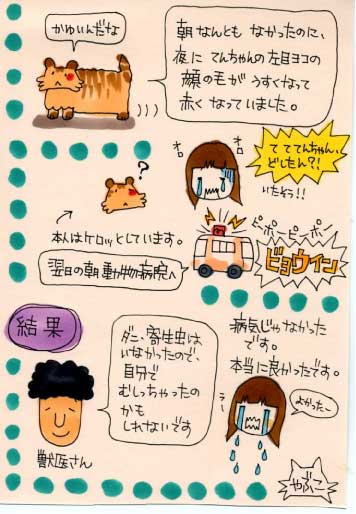 かゆいんだな
朝なんともなかったのに、
夜にてんちゃんの左目ヨコの
顔の毛がうすくなって
赤くなっていました。
?
オロ
オロ
てててんちゃん、
どしたん?!
いたそう!!
本人はケロッとしています。
翌日の朝動物病院へ
ピーポーピーポーン
ビョウイン
結果
ダニ、寄生虫は
いなかったので、
自分で
むしっちゃったの
かも
しれないです
獣医さん
病気じゃなかった
です。
本当に良かったです。
よかった〜
うー
やぶこ